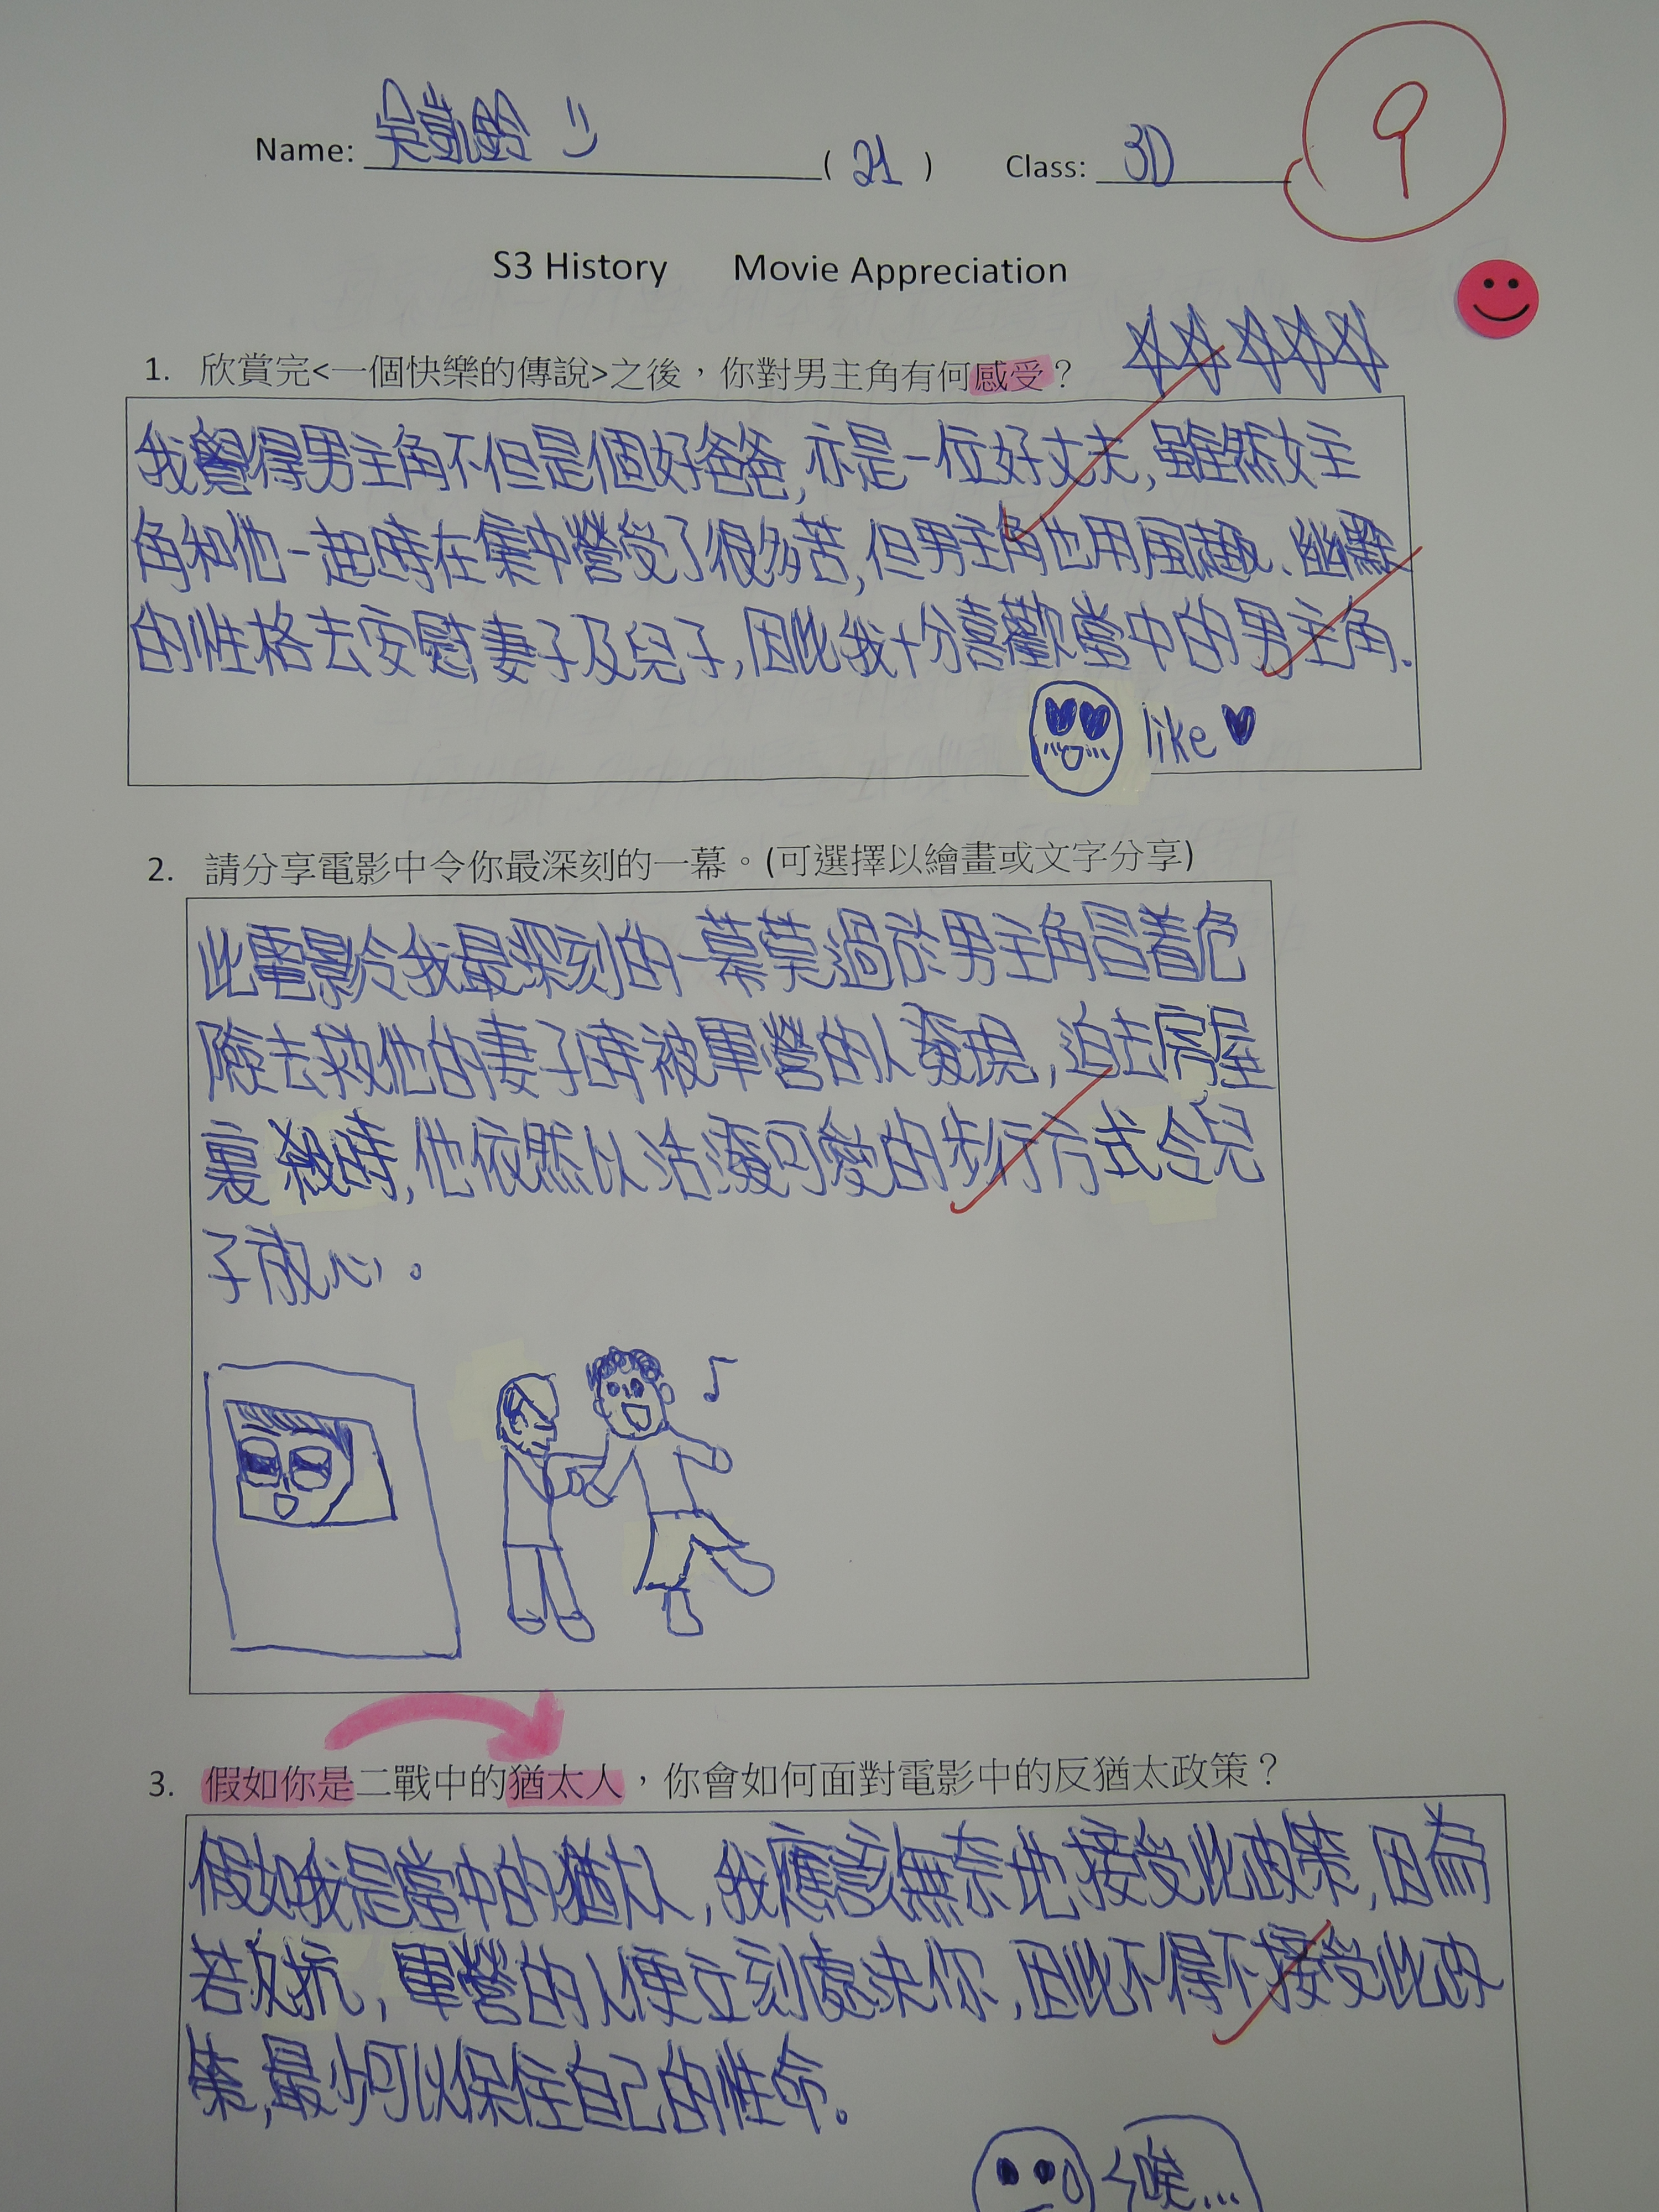 Name: 吳凱鈴 (21) Class: 3D
9
S3 History Movie Appreciation
1. 欣賞完<一個快樂的傳說>之後，你對男主角有何感受？
我覺得男主角不但是個好爸爸,亦是一位好丈夫,雖然女主
角和他一起時在集中營受了很多苦,但男主角也用風趣、幽默
的性格去安慰妻子及兒子,因此我十分喜歡當中的男主角.
like
2. 請分享電影中令你最深刻的一幕。(可選擇以繪畫或文字分享)
此電影令我最深刻的一幕莫過於男主角冒着危
險去救他的妻子時被軍營的人發現,迫去房屋
裏殺時,他依然以活潑可愛的步行方式令兒
子放心。
3. 假如你是二戰中的猶太人，你會如何面對電影中的反猶太政策？
假如我是當中的猶太人,我應該無奈地接受此政策,因為
若反抗,軍營的人便立刻處決你,因此不得不接受此政
策,最少可以保住自己的性命。
唉...